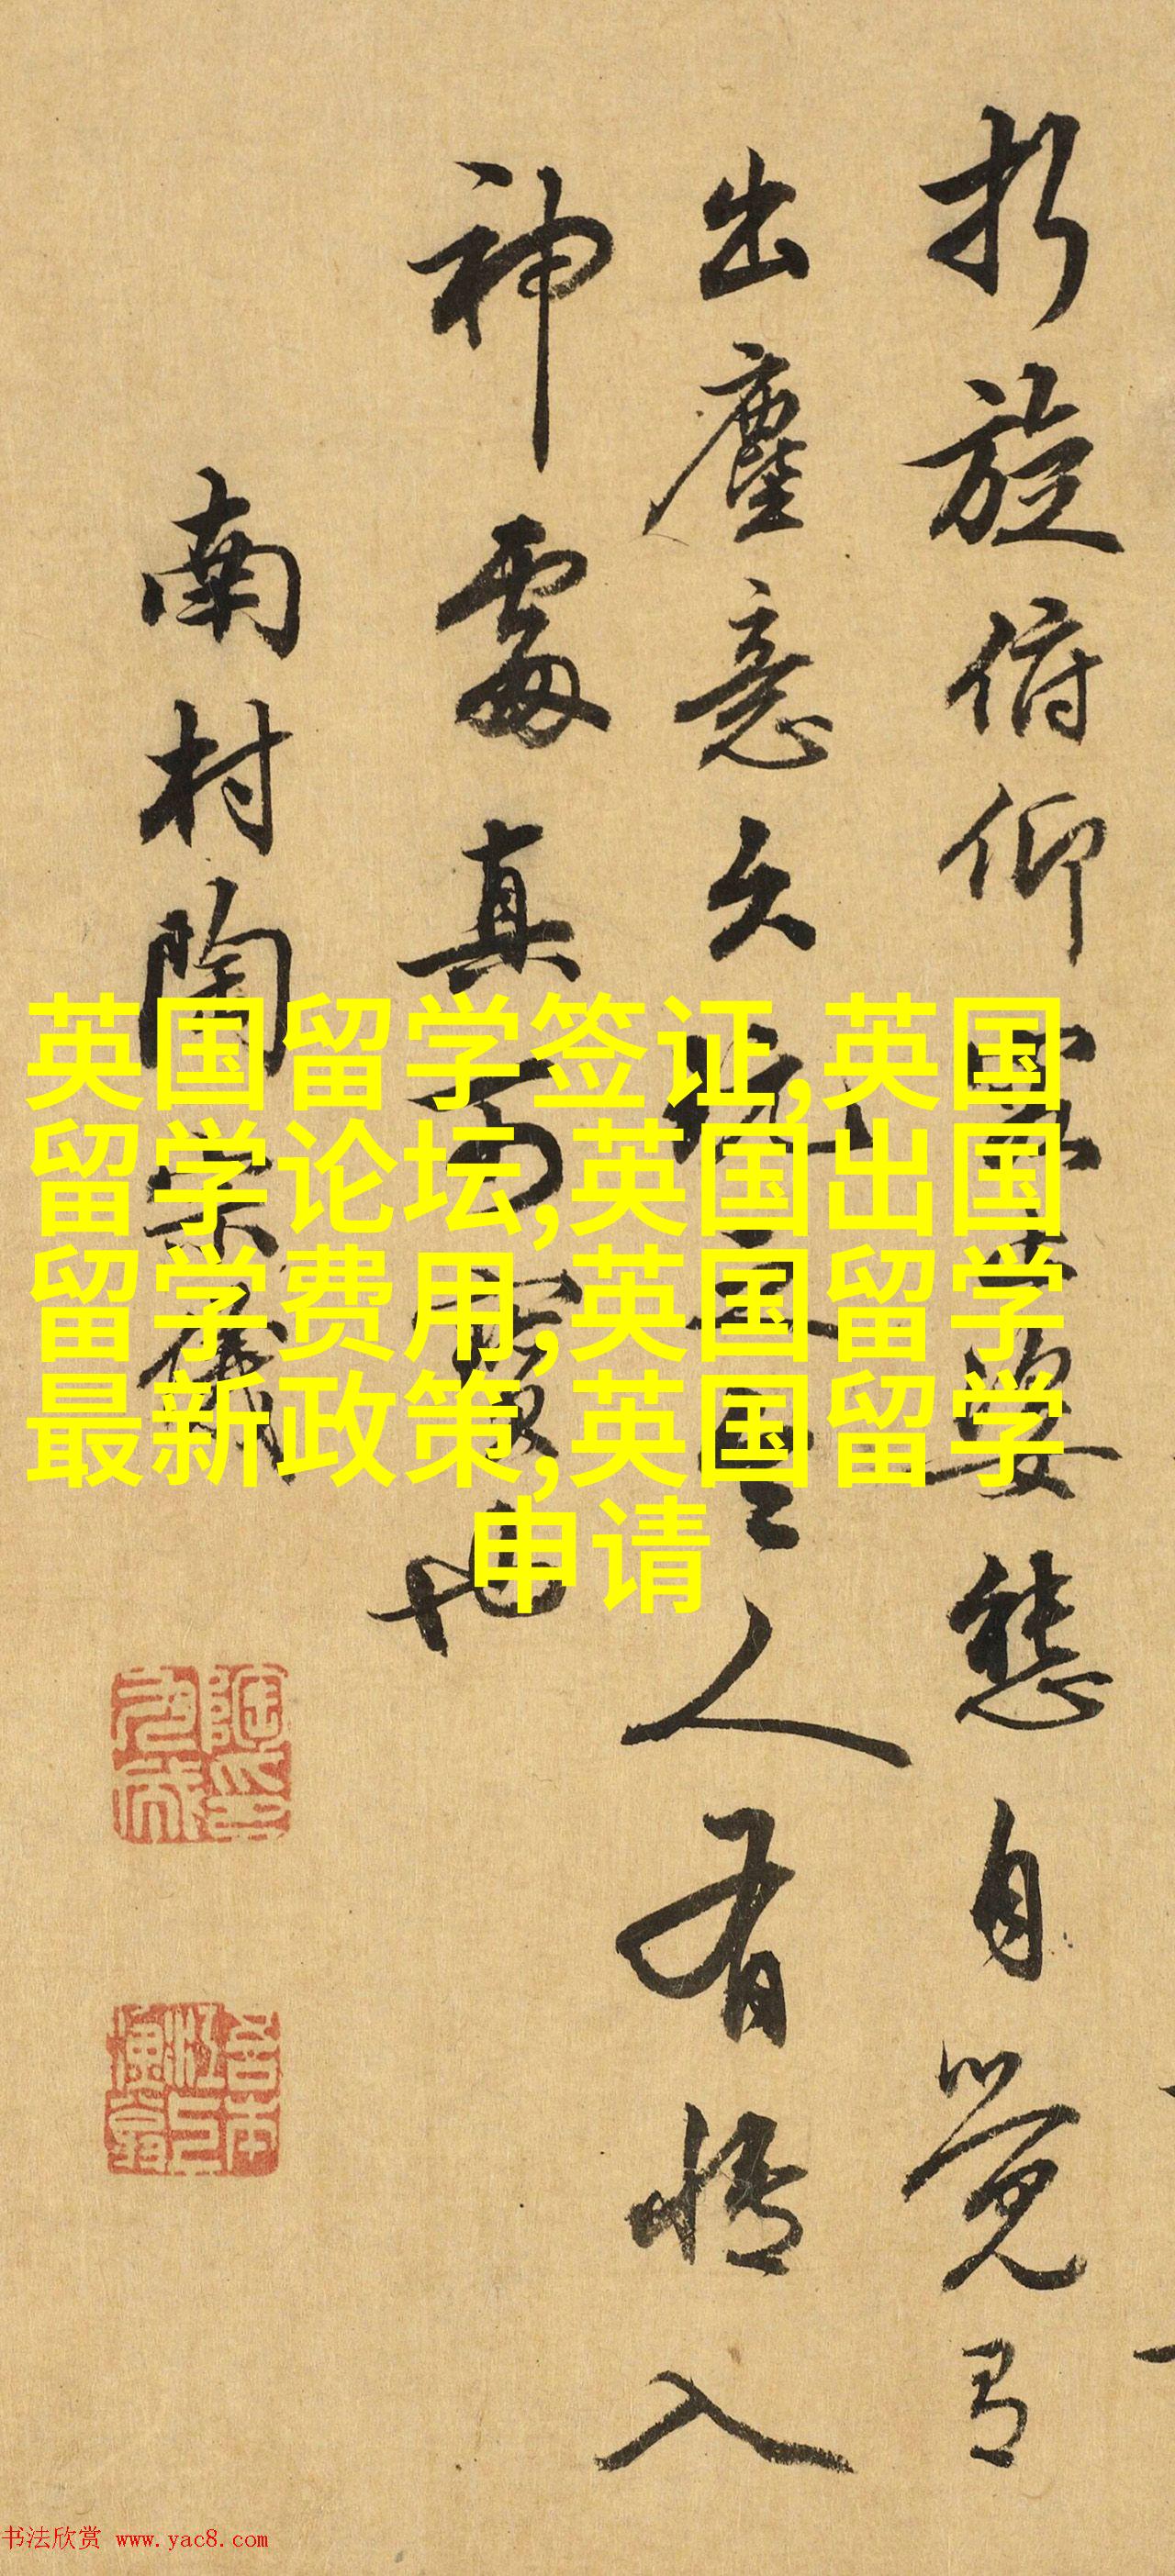 折旋俯仰姿態自覺有
出塵意久人有情入
神處真寶也
南村陶宗儀
英国留学签证,英国
留学论坛,英国出国
留学费用,英国留学
最新政策,英国留学
申请
书法欣赏 www.yac8.com